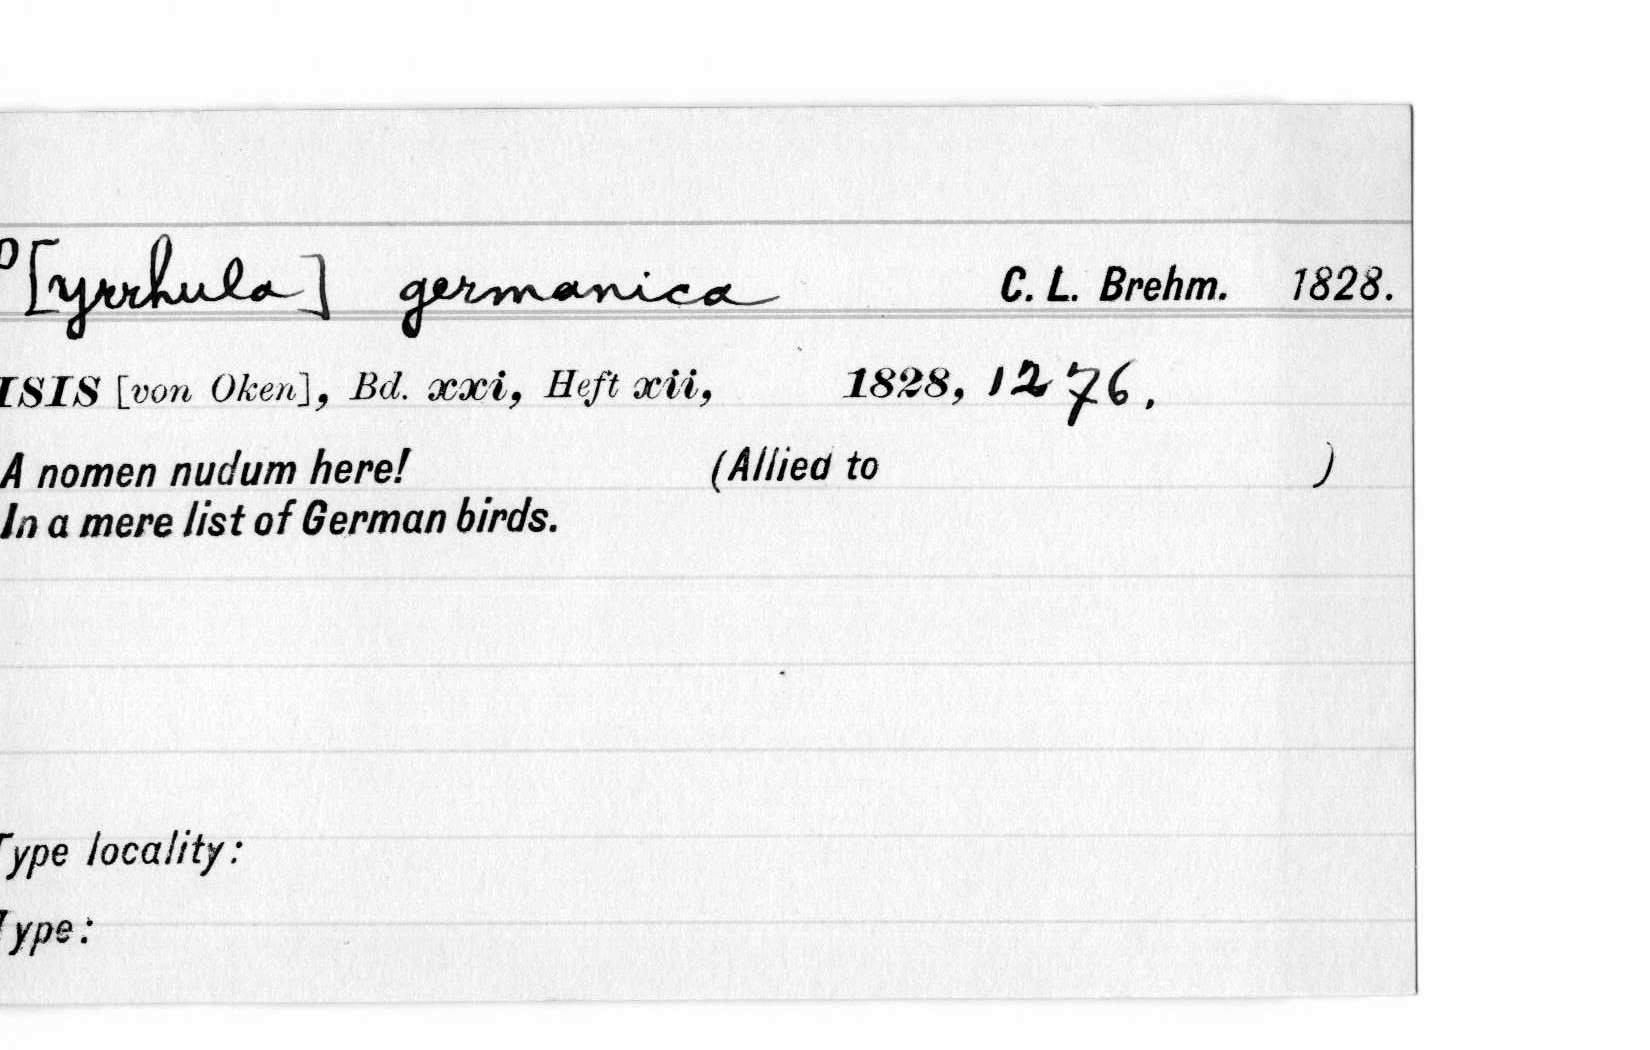 P[yrrhula] germanica C. L. Brehm. 1828.
ISIS [von Oken], Bd. xxi, Heft xii, 1828, 1276.
A nomen nudum here! (Allied to )
In a mere list of German birds.
Type locality:
Type: